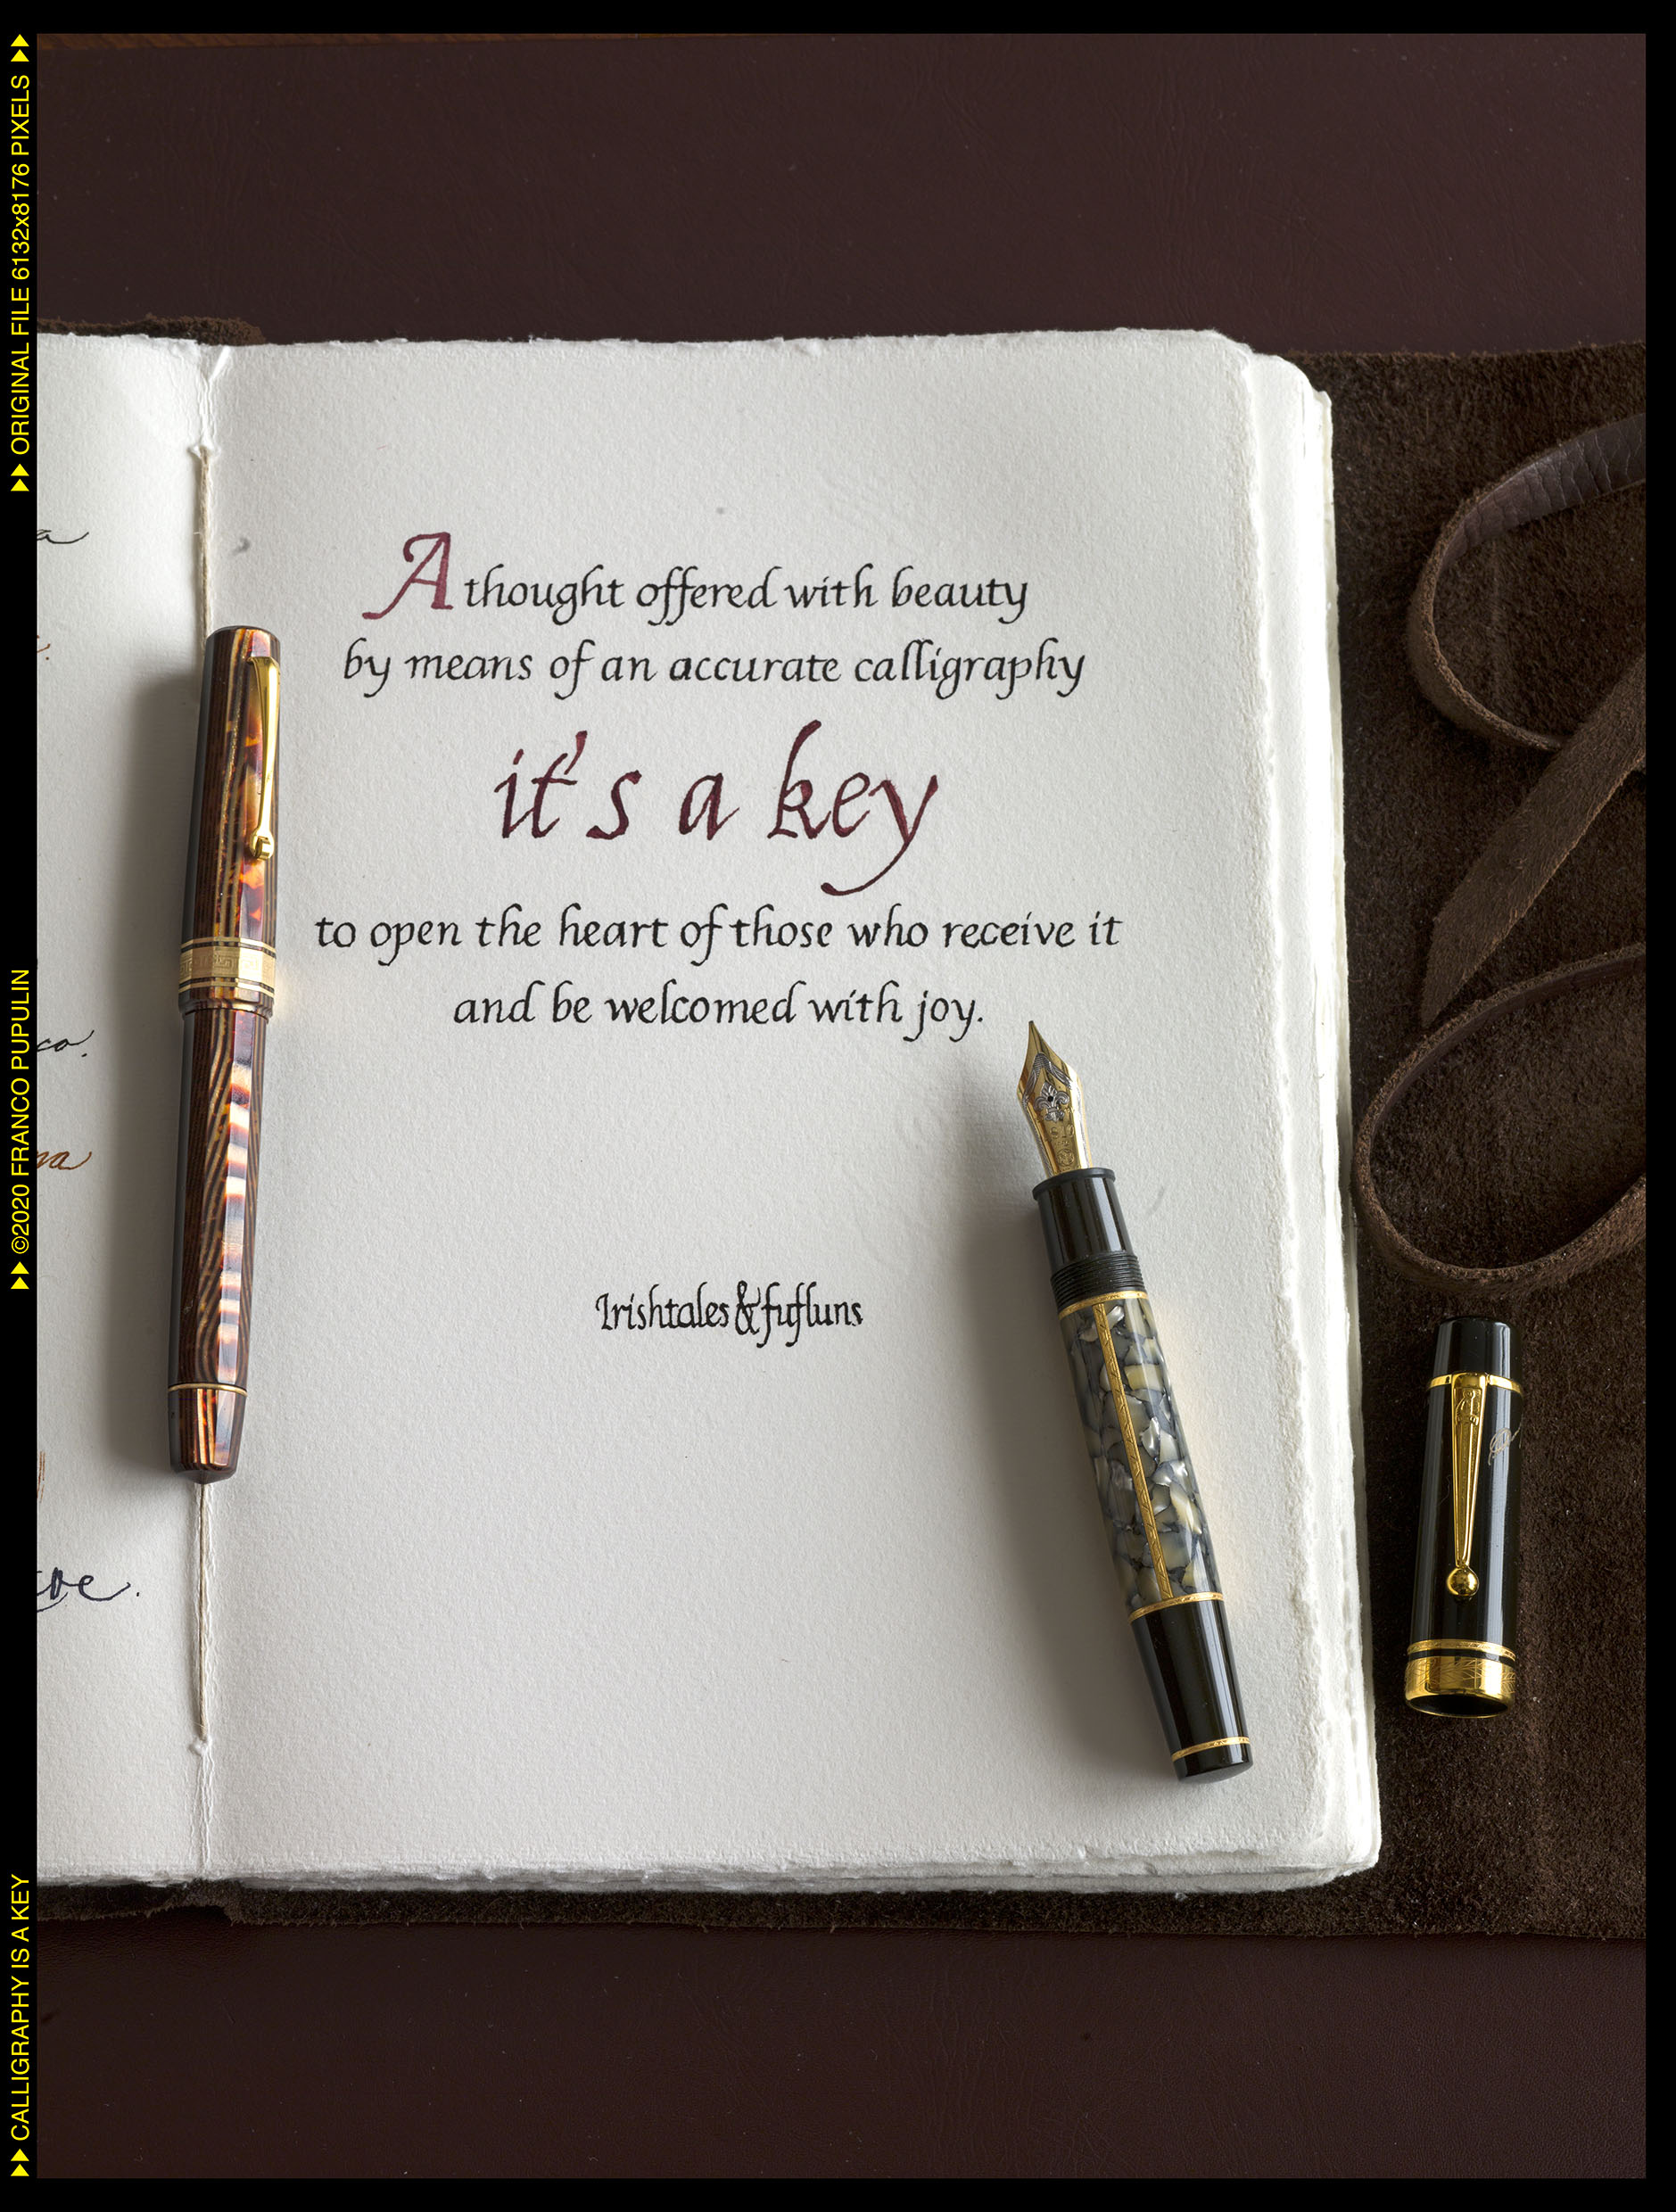 A thought offered with beauty
by means of an accurate calligraphy
it's a key
to open the heart of those who receive it
and be welcomed with joy.
Irishtales & fufluns
CALLIGRAPHY IS A KEY
©2020 FRANCO PUPULIN
ORIGINAL FILE 6132x8176 PIXELS